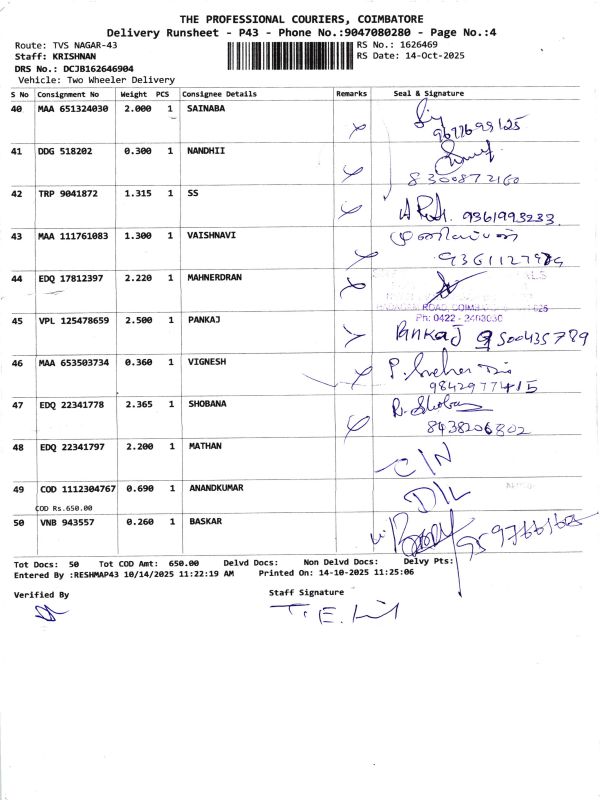 THE PROFESSIONAL COURIERS, COIMBATORE
Delivery Runsheet - P43 - Phone No.:9047080280 - Page No.:4
Route: TVS NAGAR-43 RS No.: 1626469
Staff: KRISHNAN RS Date: 14-Oct-2025
DRS No.: DCJB162646904
Vehicle: Two Wheeler Delivery
S No Consignment No Weight PCS Consignee Details Remarks Seal & Signature
40 MAA 651324030 2.000 1 SAINABA
9677699125
41 DDG 518202 0.300 1 NANDHII
8300872160
42 TRP 9041872 1.315 1 SS
9361993233
43 MAA 111761083 1.300 1 VAISHNAVI
44 EDQ 17812397 2.220 1 MAHNERDRAN
Ph: 0422 -
45 VPL 125478659 2.500 1 PANKAJ
PANKAJ 9500435789
46 MAA 653503734 0.360 1 VIGNESH
9842977415
47 EDQ 22341778 2.365 1 SHOBANA
R. Shobana
8438206802
48 EDQ 22341797 2.200 1 MATHAN
C/N
49 COD 1112304767 0.690 1 ANANDKUMAR
D/L
COD Rs.650.00
50 VNB 943557 0.260 1 BASKAR
Tot Docs: 50 Tot COD Amt: 650.00 Delvd Docs: Non Delvd Docs: Delvy Pts:
Entered By :RESHMAP43 10/14/2025 11:22:19 AM Printed On: 14-10-2025 11:25:06
Verified By Staff Signature